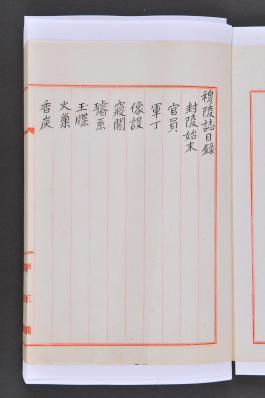 穆陵誌目錄
封陵始末
官員
軍丁
像設
寢閣
璿系
玉牒
火巢
香炭
李王職